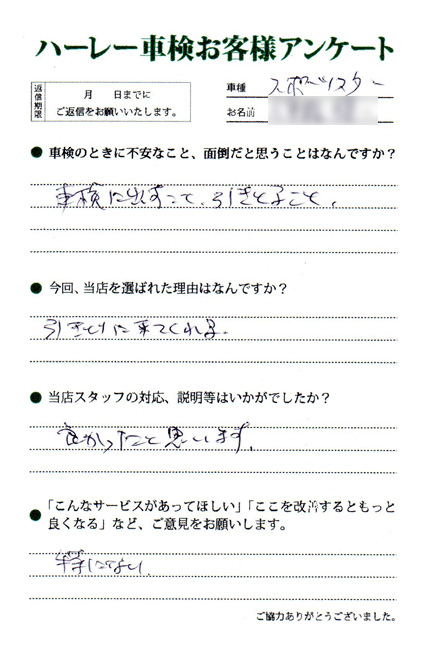 ハーレー車検お客様アンケート
返信期限
月　日までに
ご返信をお願いいたします。
車種 スポーツスター
お名前
● 車検のときに不安なこと、面倒だと思うことはなんですか？
車検に出すこと、引きとること。
● 今回、当店を選ばれた理由はなんですか？
引きとりに来てくれる。
● 当店スタッフの対応、説明等はいかがでしたか？
良かったと思います。
● 「こんなサービスがあってほしい」「ここを改善するともっと
良くなる」など、ご意見をお願いします。
特にない。
ご協力ありがとうございました。